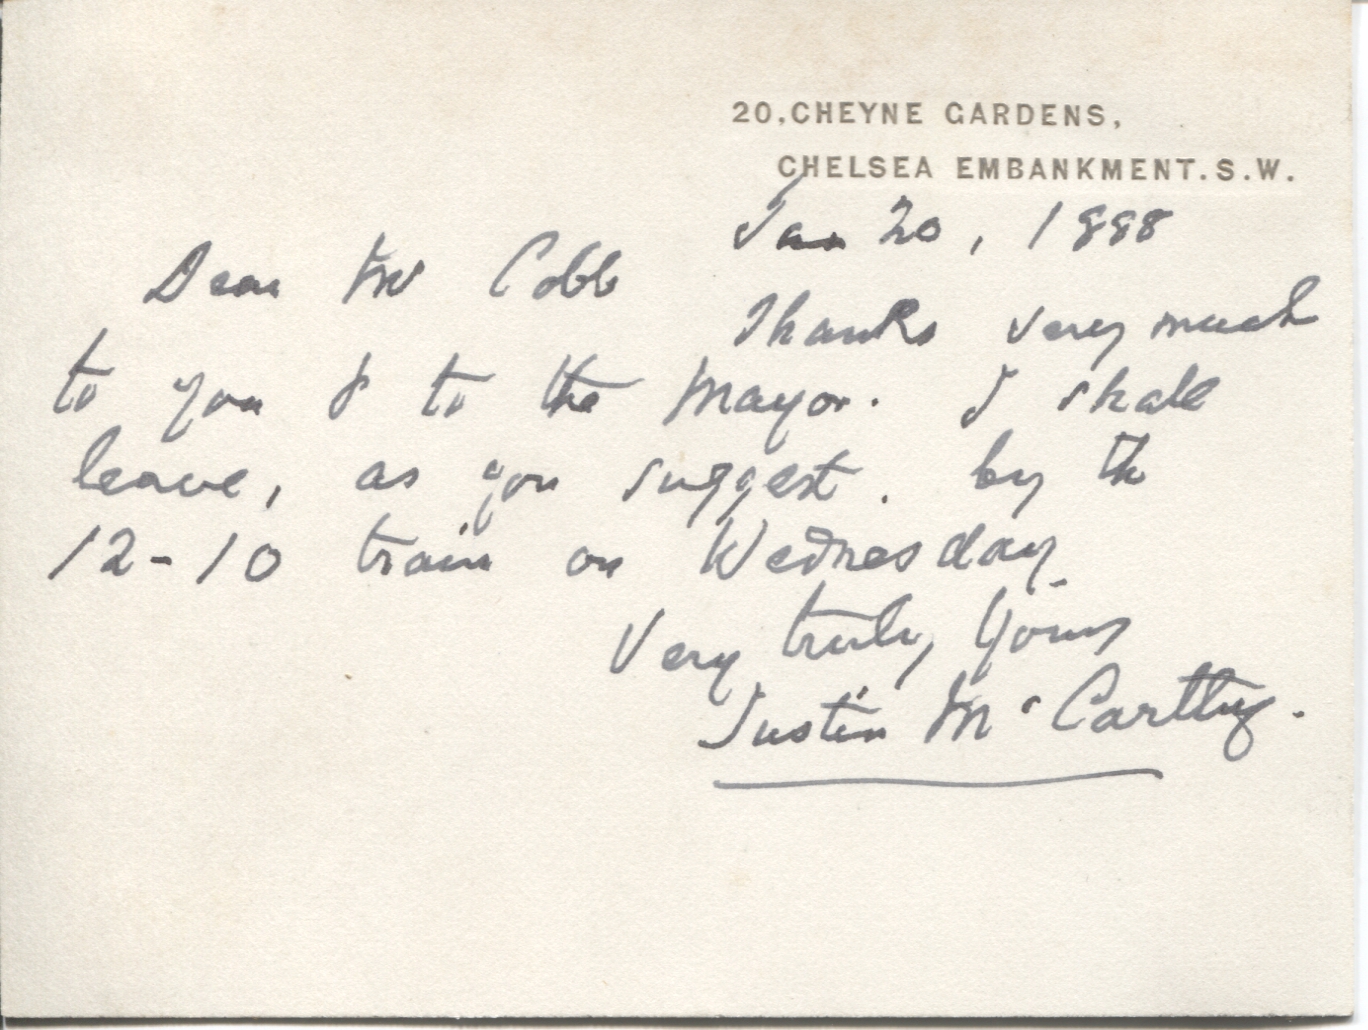 20, CHEYNE GARDENS,
CHELSEA EMBANKMENT. S.W.
Jan 20, 1888
Dear Mr Cobb
Thanks very much
to you & to the Mayor. I shall
leave, as you suggest. by the
12-10 train on Wednesday.
Very truly yours
Justin McCarthy.